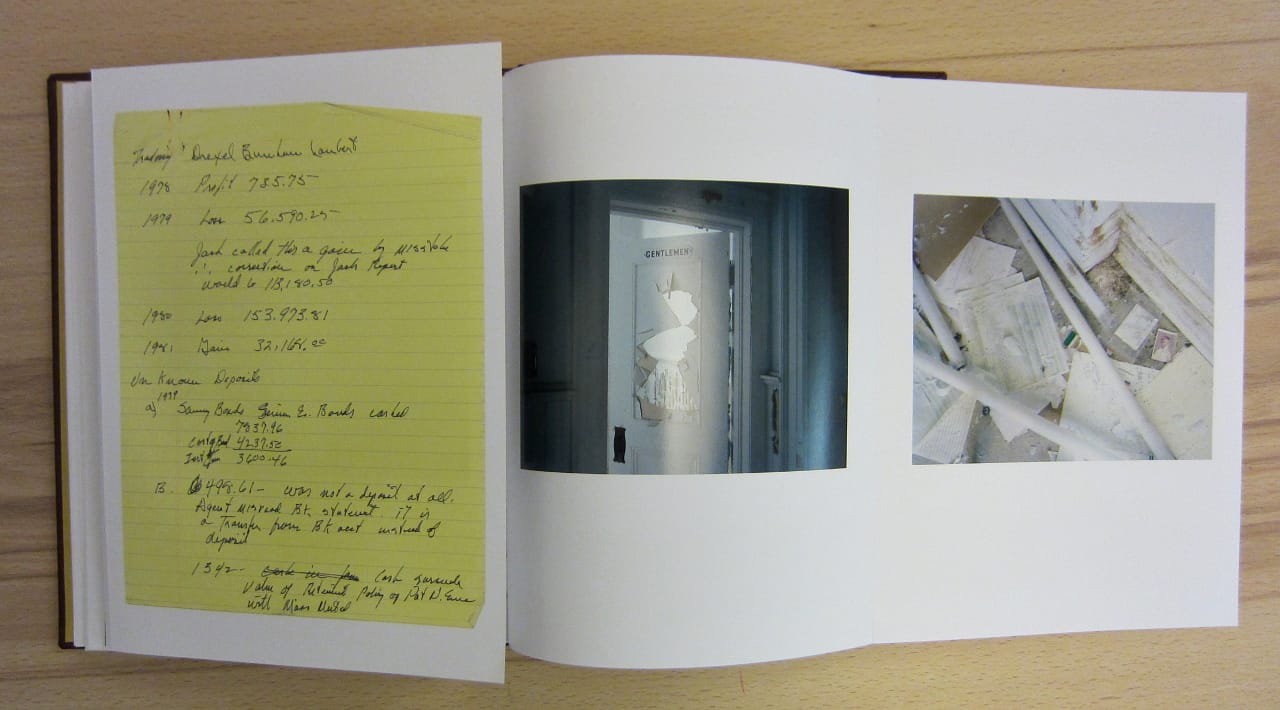 Trading Drexel Burnham Lambert
1978 Profit 785.75
1979 Loss 56,590.25
Jack called this a gain by mistake
∴ correction on Jack Report
would be 113,180.50
1980 Loss 153,973.81
1981 Gain 32,164.00
Un Known Deposits
1979
a) Savings Bonds Series E. Bonds cashed
7837.96
Cost of Bond 4237.50
Int 3600.46
B. 498.61 — was not a deposit at all.
Agent misread Bk statement. it is
a Transfer from Bk acct instead of
deposit
1542 - Cash surrender
Value of Retirement Policy of Pat N.
with Mass Mutual
GENTLEMEN